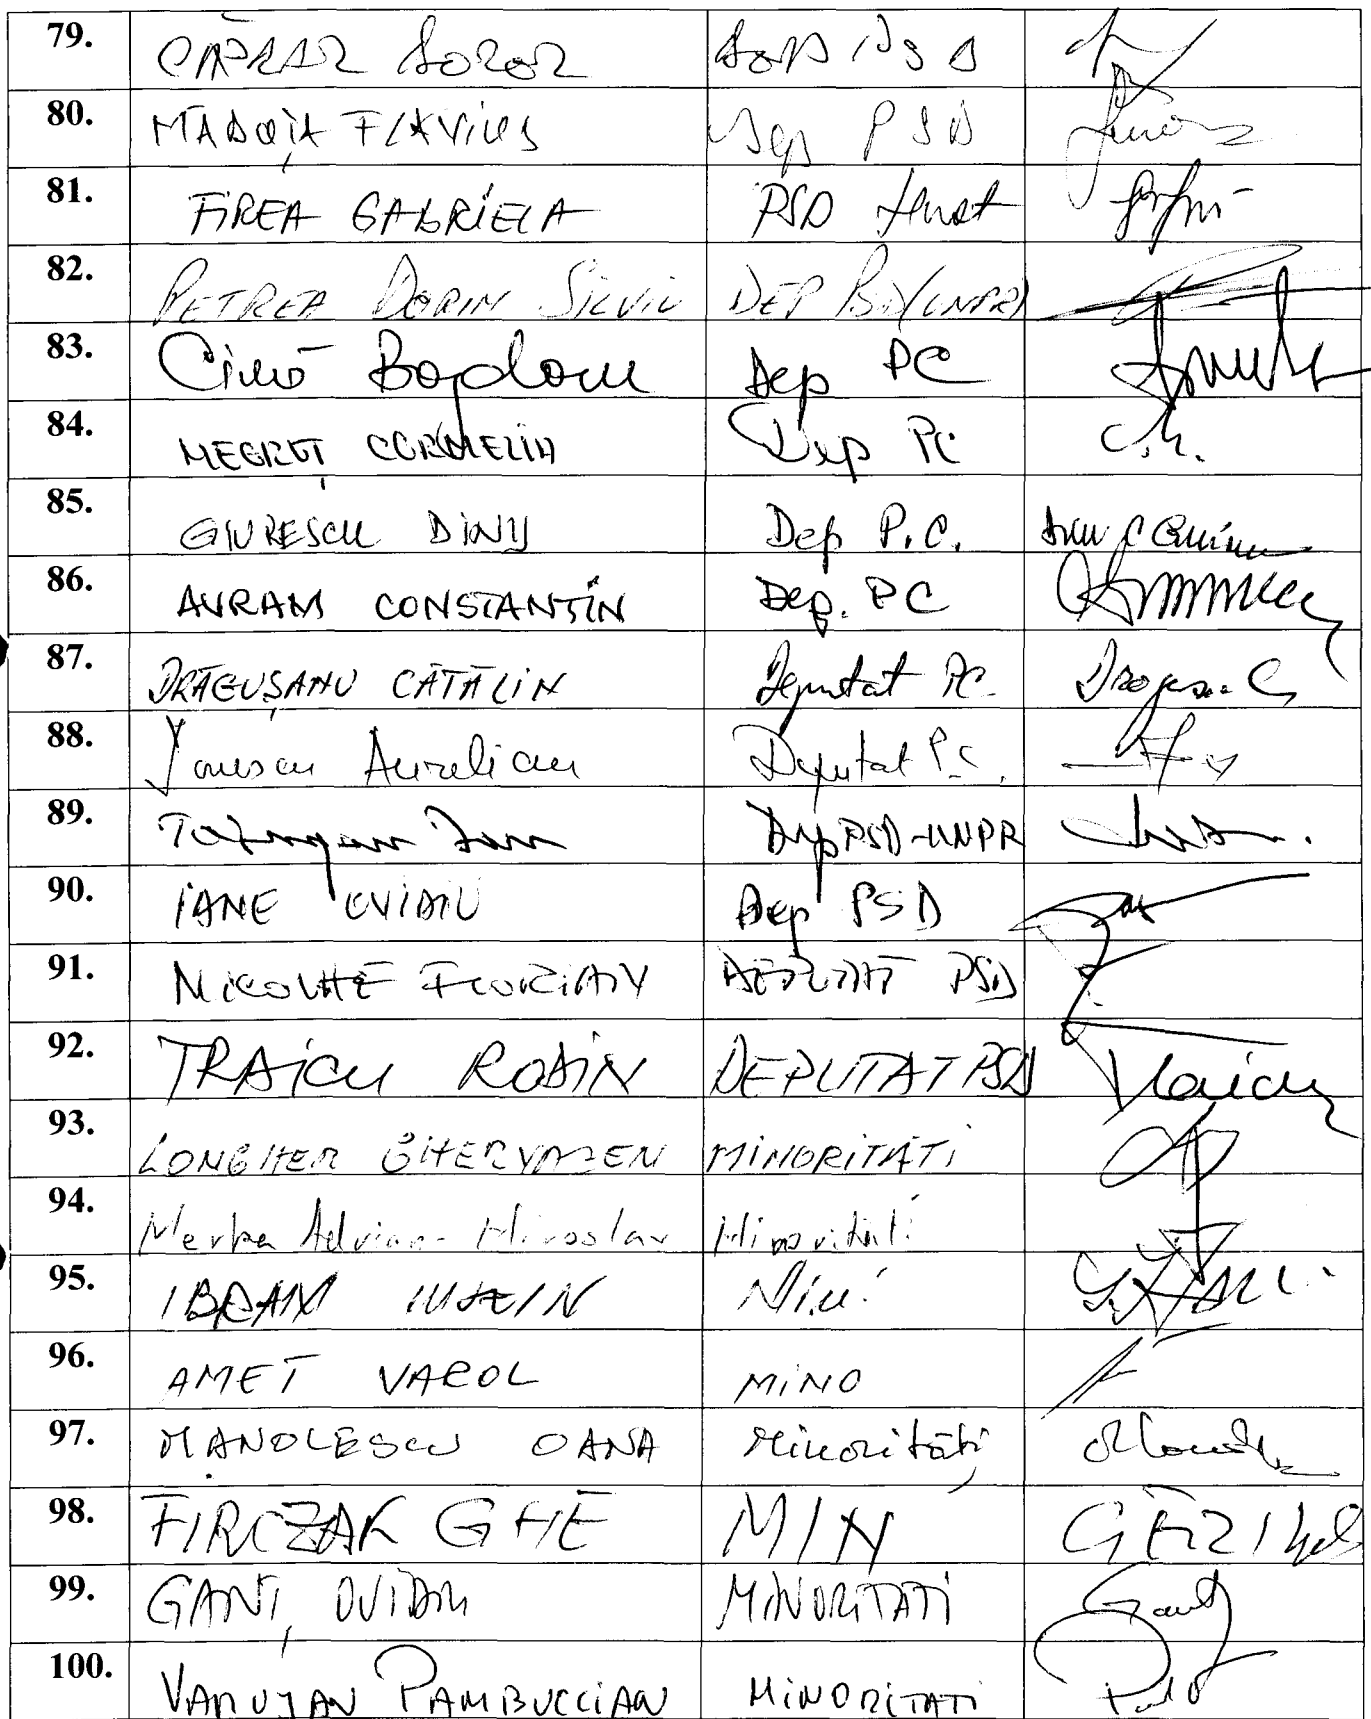 79. CĂPRAR DOREL Dep PSD
80. MĂDUȚA FLAVIUS Dep PSD
81. FIREA GABRIELA PSD Senat
82. PETREA DORIN SILVIU DEP PSD(UNPR)
83. Bogdan Dep PC
84. NEGRUȚ CORNELIA Dep PC
85. GIURESCU DINU Dep P.C.
86. AVRAM CONSTANTIN Dep. PC
87. DRĂGUȘANU CĂTĂLIN Deputat PC.
88. Ionescu Aurelian Deputat P.C.
89. Dep PSD-UNPR
90. IANE OVIDIU Dep PSD
91. NICOLAE FLORIAN DEPUTAT PSD
92. TRAICU ROBIN DEPUTAT PSD Traicu
93. LONGHER GHERVAZEN MINORITĂȚI
94. Merka Adrian-Miroslav Minorități
95. IBRAM IUSEIN Min.
96. AMET VAROL MINO
97. MANOLESCU OANA Minorități
98. FIRCZAK GHE MIN
99. GANȚ OVIDIU MINORITATI Gant
100. VARUJAN PAMBUCCIAN MINORITATI